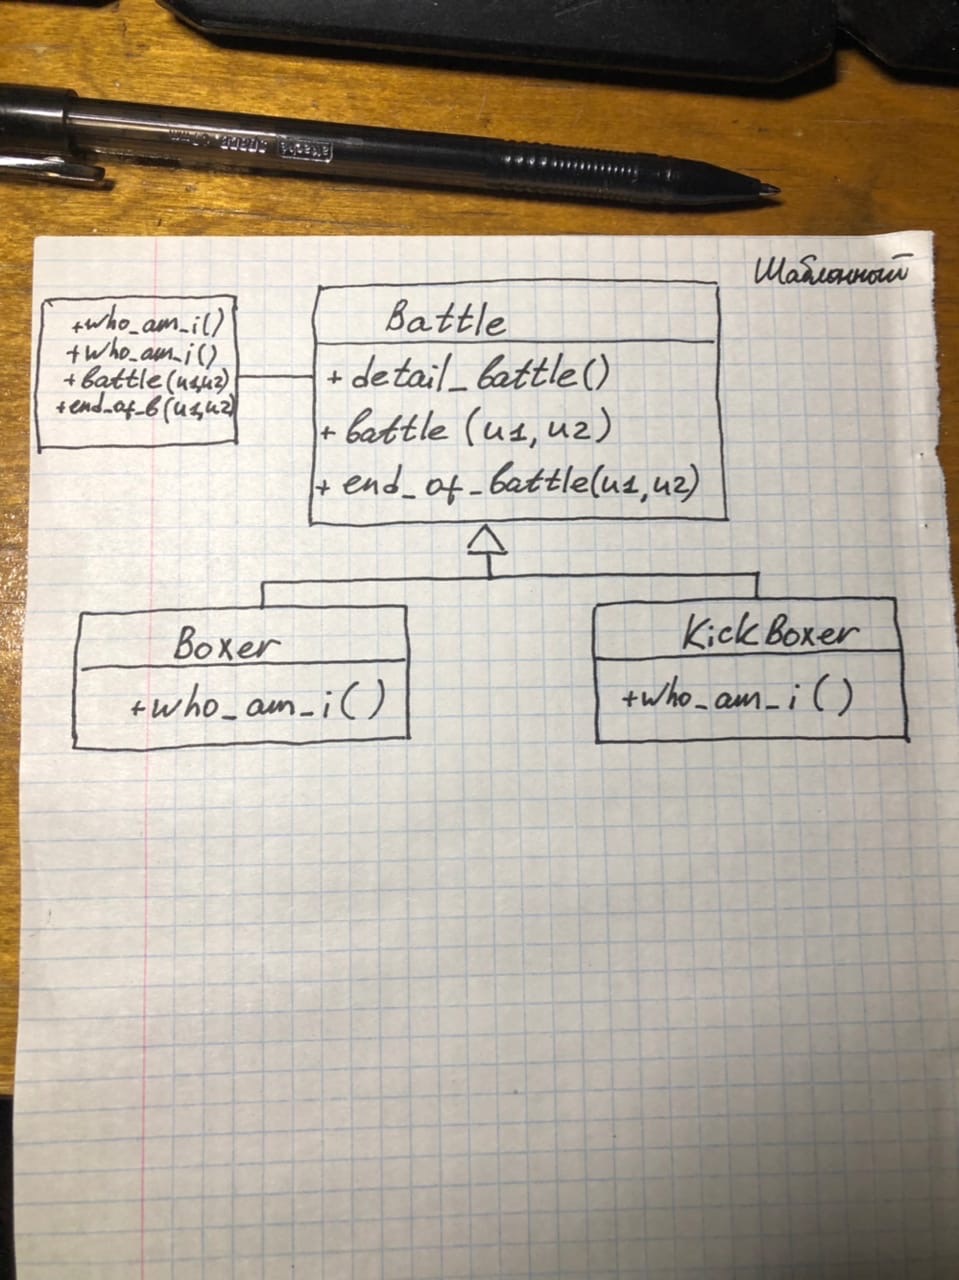 attache
Шаблонный
+who_am_i()
+who_am_i()
+battle(u1,u2)
+end_of_b(u1,u2)
Battle
+ detail_battle()
+ battle (u1, u2)
+ end_of_battle(u1,u2)
Boxer
+who_am_i()
KickBoxer
+who_am_i()